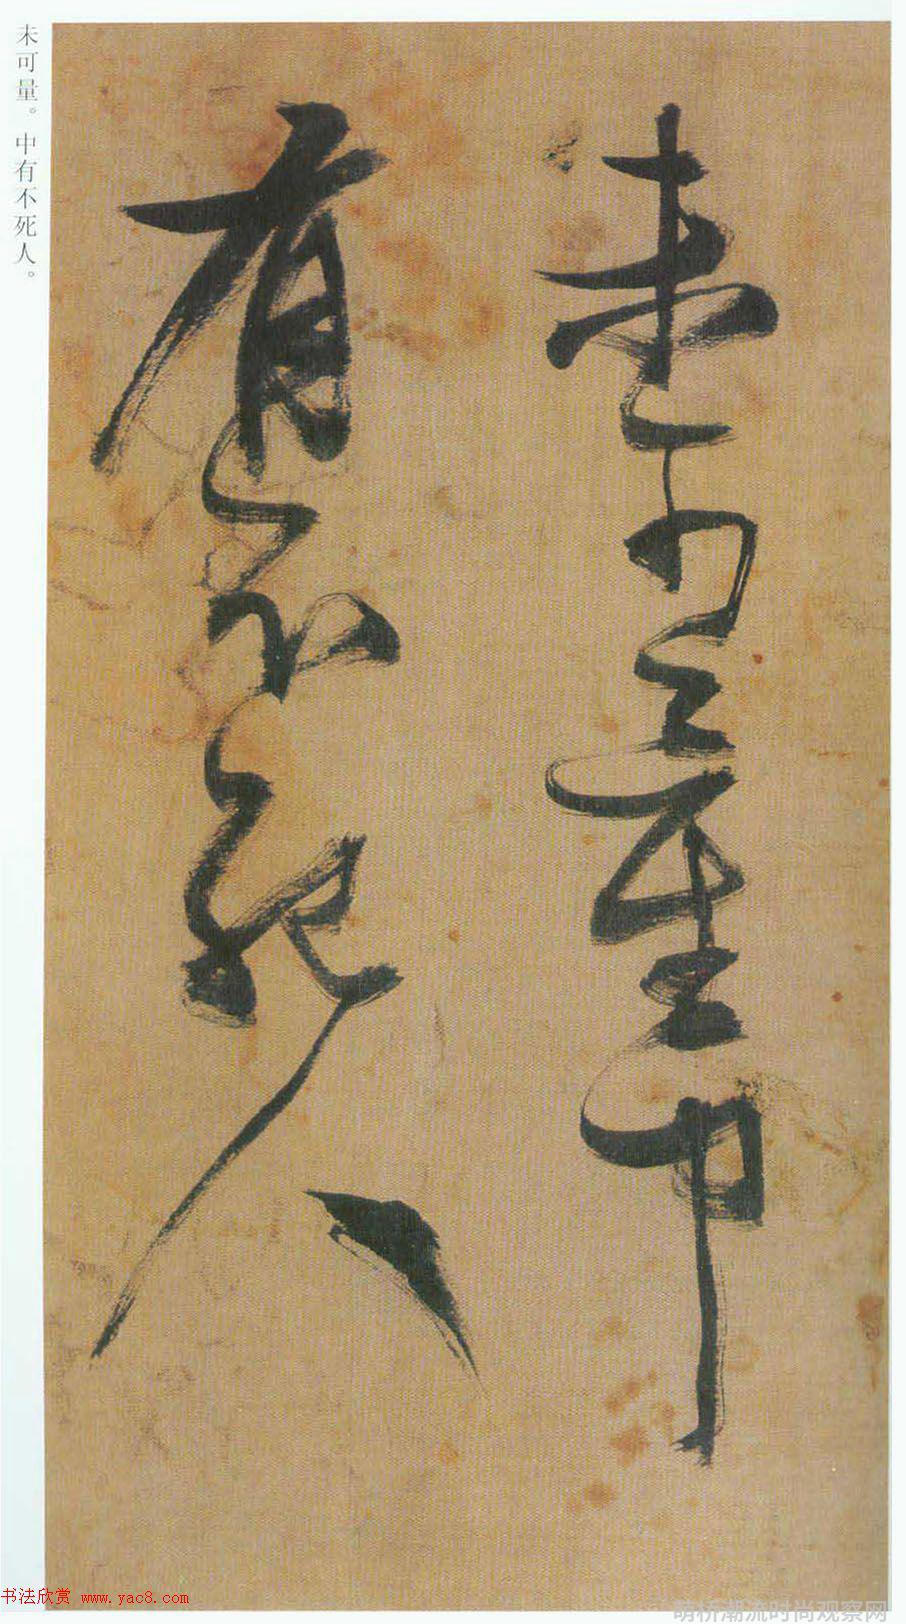 未可量中
有不死人
未可量。中有不死人。
书法欣赏 www.yac8.com
萌桥潮流时尚观察网